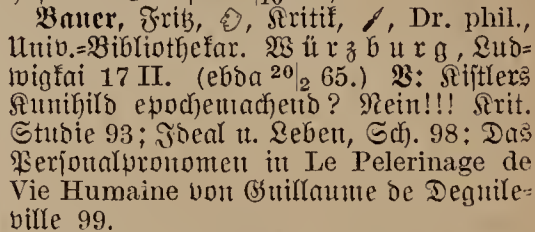 Bauer, Fritz, Kritik, Dr. phil.,
Univ.=Bibliothekar. Würzburg, Lud=
wigkai 17 II. (ebda 20|2 65.) V: Kistlers
Kunihild epochemachend? Nein!!! Krit.
Studie 93; Ideal u. Leben, Sch. 98; Das
Personalpronomen in Le Pelerinage de
Vie Humaine von Guillaume de Deguile=
ville 99.